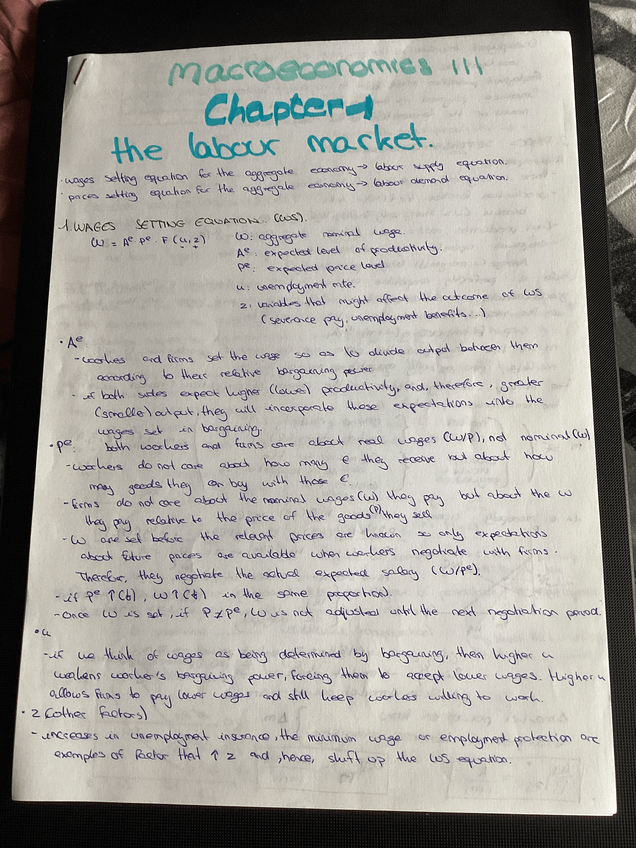 Macroeconomics III
Chapter 1
the labour market.
· wages setting equation for the aggregate economy → labour supply equation.
· prices setting equation for the aggregate economy → labour demand equation.
1. WAGES SETTING EQUATION (WS).
W = Aᵉ · Pᵉ · F(u, z)
W: aggregate nominal wage.
Aᵉ: expected level of productivity.
Pᵉ: expected price level
u: unemployment rate.
z: variables that might affect the outcome of WS
(severance pay, unemployment benefits...)
· Aᵉ
- workers and firms set the wage so as to divide output between them
according to their relative bargaining power.
- if both sides expect higher (lower) productivity, and, therefore, greater
(smaller) output, they will incorporate these expectations into the
wages set in bargaining.
· Pᵉ: both workers and firms care about real wages (W/P), not nominal (W)
- workers do not care about how many € they receive but about how
many goods they can buy with those €.
- firms do not care about the nominal wages (W) they pay but about the W
they pay relative to the price of the goods (P) they sell
- W are set before the relevant prices are known so only expectations
about future prices are available when workers negotiate with firms.
Therefore, they negotiate the actual expected salary (W/Pᵉ).
- if Pᵉ ↑(↓), W ↑(↓) in the same proportion.
- Once W is set, if P ≠ Pᵉ, W is not adjusted until the next negotiation period.
· u
- if we think of wages as being determined by bargaining, then higher u
weakens worker's bargaining power, forcing them to accept lower wages. Higher u
allows firms to pay lower wages and still keep workers willing to work.
· z (other factors)
- increases in unemployment insurance, the minimum wage or employment protection are
examples of factor that ↑ z and, hence, shift up the WS equation.